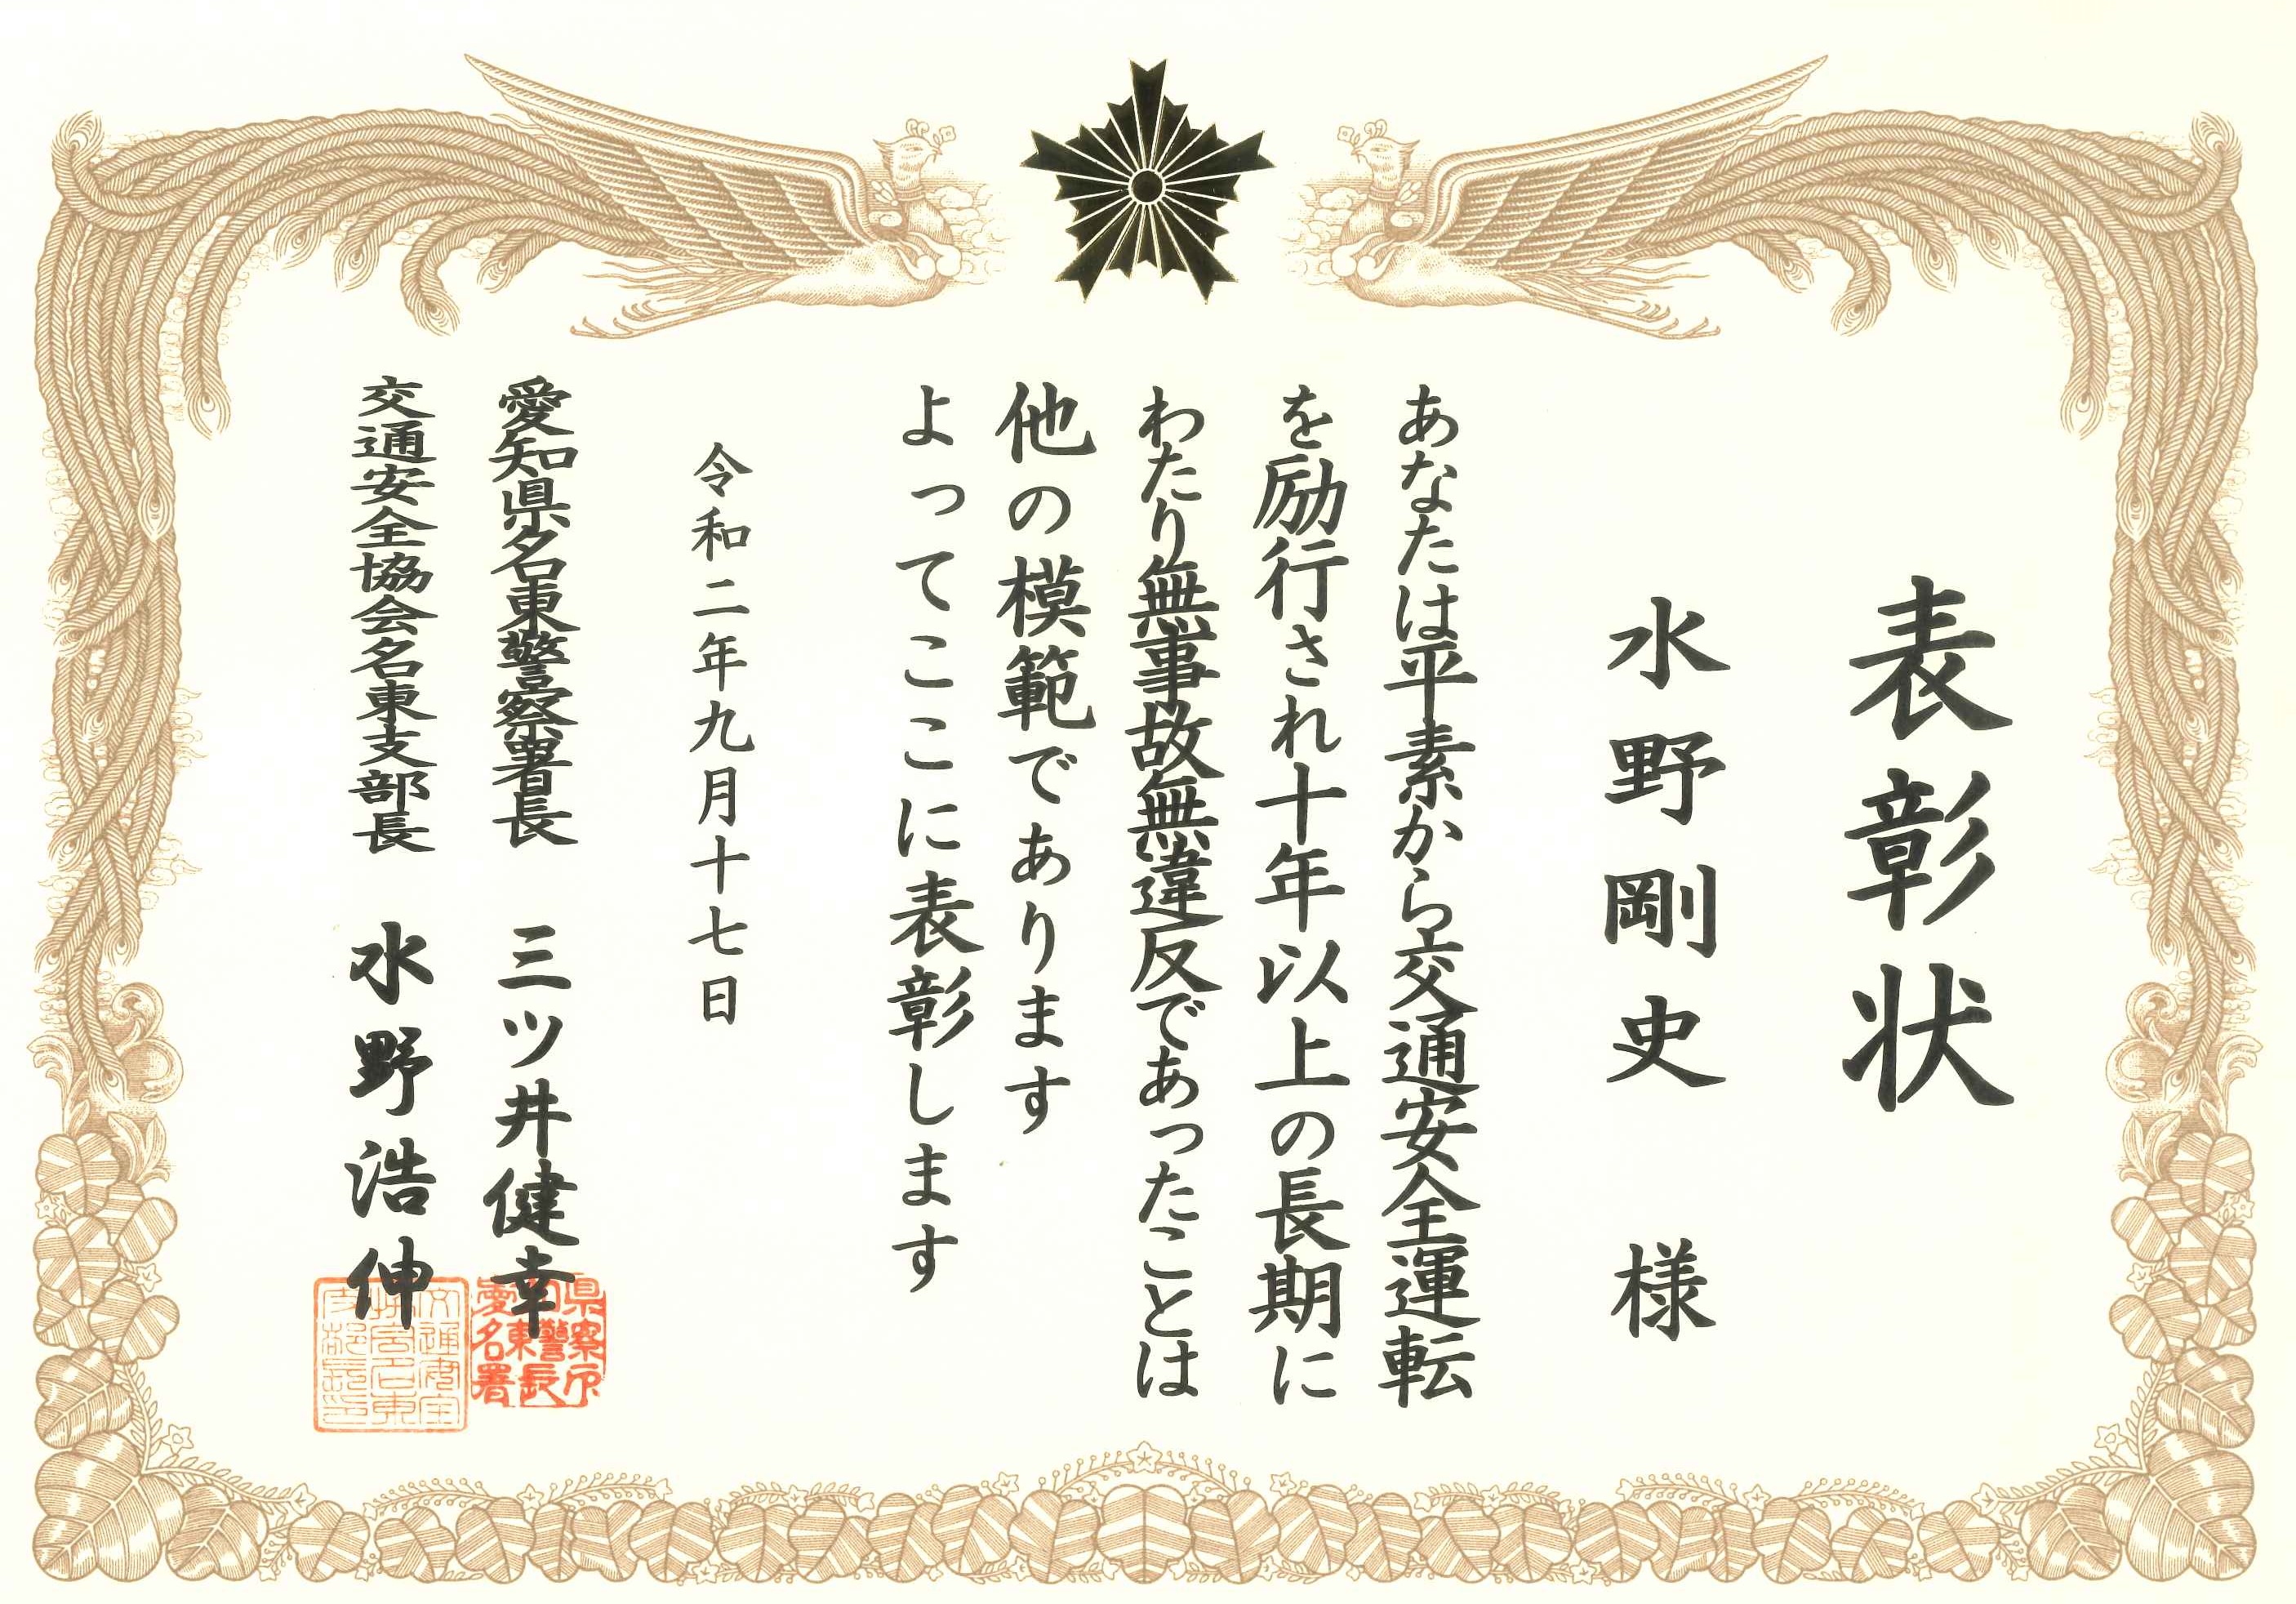 表彰状
水野剛史 様
あなたは平素から交通安全運転
を励行され十年以上の長期に
わたり無事故無違反であったことは
他の模範であります
よってここに表彰します
令和二年九月十七日
愛知県名東警察署長 三ツ井健幸
交通安全協会名東支部長 水野浩伸